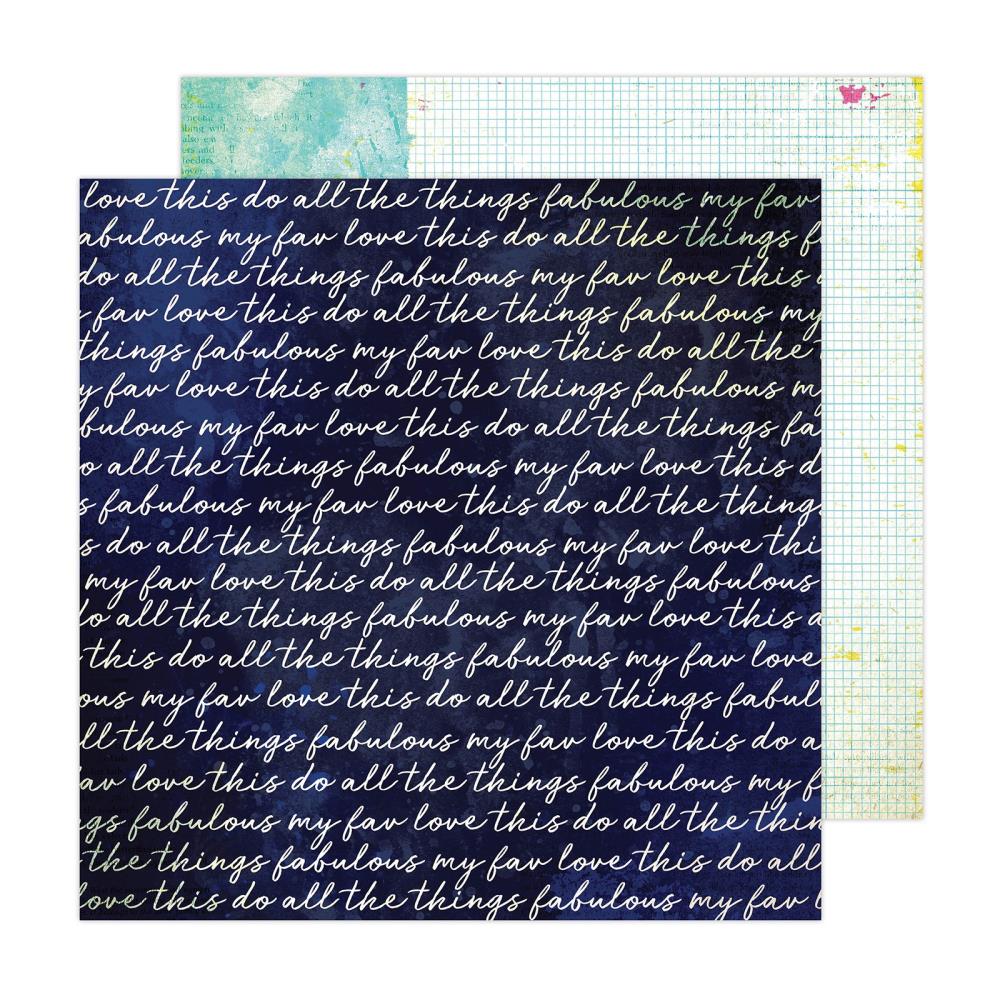 The
and
which it
also
and
feeders.
love this do all the things fabulous my fav
abulous my fav love this do all the things f
do all the things fabulous my fav love this
fav love this do all the things fabulous my
things fabulous my fav love this do all the
y fav love this do all the things fabulous m
bulous my fav love this do all the things fa
o all the things fabulous my fav love this d
s fabulous my fav love this do all the thing
s do all the things fabulous my fav love thi
my fav love this do all the things fabulous
do all the things fabulous my fav love this d
this do all the things fabulous my fav love
ous my fav love this do all the things fabul
ll the things fabulous my fav love this do a
av love this do all the things fabulous my f
gs fabulous my fav love this do all the thin
the things fabulous my fav love this do all
love this do all the things fabulous my fav l